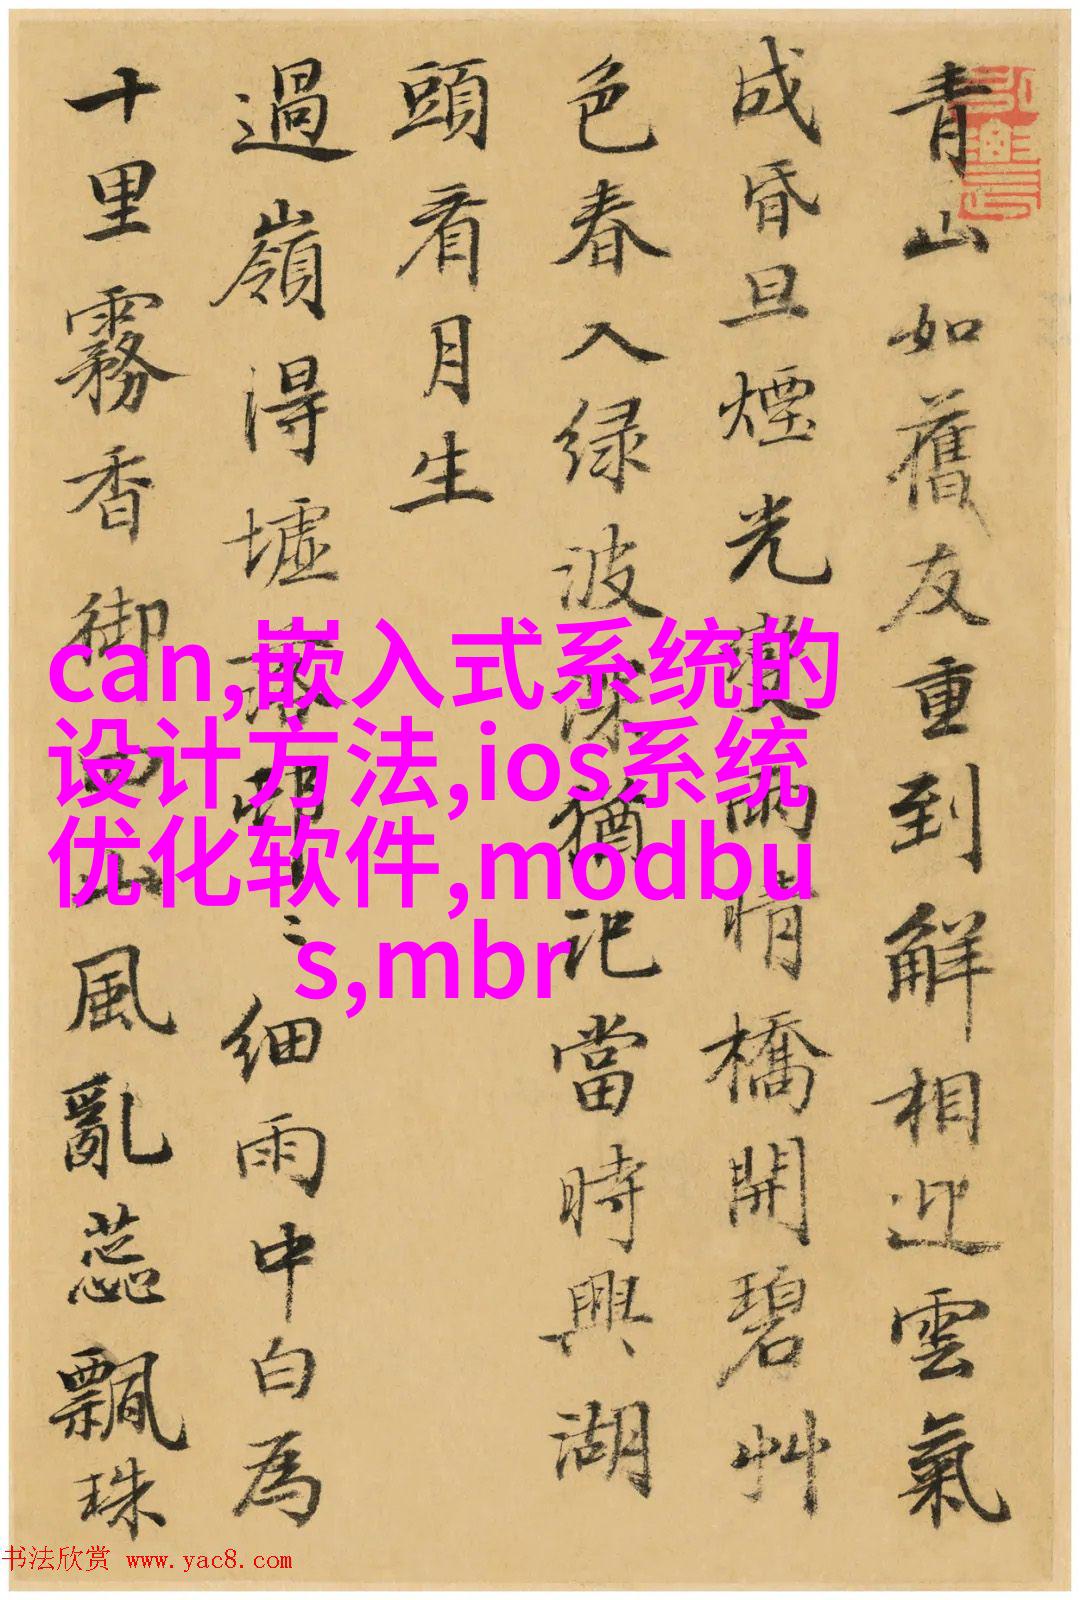 青山如舊友重到解相迎雲氣
成昏旦煙光變雨晴橋開碧艸
色春入绿波深猶記當時興湖
頭看月生
過嶺得墟落細雨中白為
十里霧香御山風亂蕊飄珠
can,嵌入式系统的
设计方法,ios系统
优化软件,modbu
s,mbr
书法欣赏 www.yac8.com